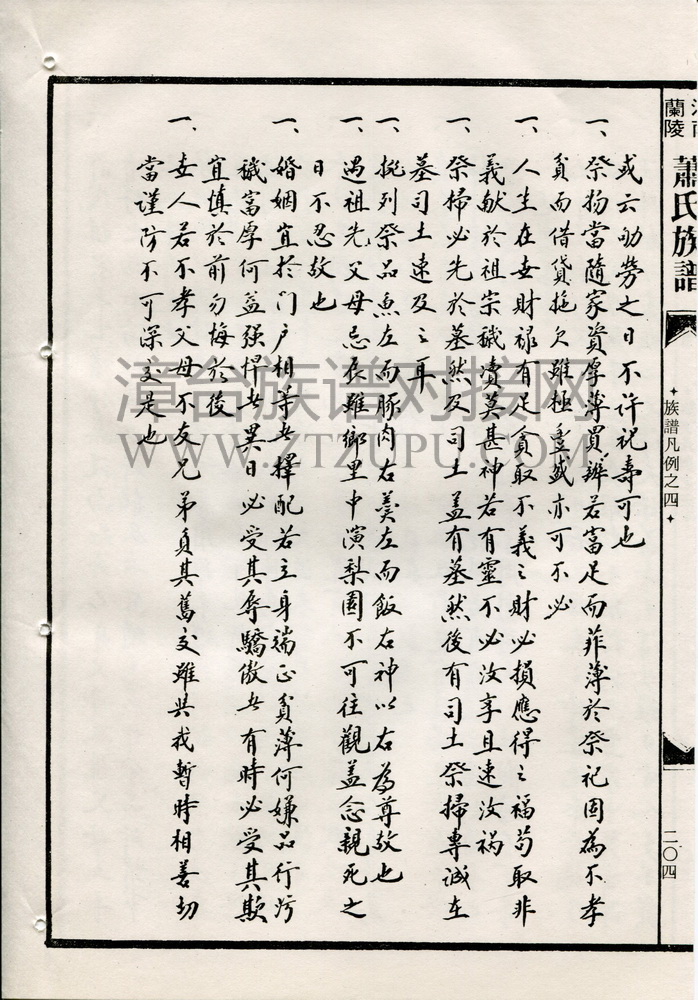 蘭陵
蕭氏族譜
族譜凡例之四
二〇四
或云劬勞之日不許祝壽可也
一、祭揚當隨家資厚薄買辦若富足而菲薄於祭祀固為不孝
貧而借貸拖欠雖極豊盛亦可不必
一、人生在世財祿有足貪取不義之財必損應得之福苟取非
義獻於祖宗穢瀆莫甚神若有靈不必汝享且速汝禍
一、祭掃必先於墓然及司土盖有墓然後有司土祭掃專誠在
墓司土速及之耳
一、挑列祭品魚左而豚肉右羮左而飯右神以右為尊故也
一、遇祖先父母忌辰雖鄉里中演梨園不可往觀盖念親死之
日不忍故也
一、婚姻宜於门户相等者擇配若立身端正貧薄何嫌品行污
穢富厚何益强悍者異日必受其辱驕傲者有時必受其欺
宜慎於前勿悔於後
一、世人若不孝父母不友兄弟負其舊交雖與我暫時相善切
當謹防不可深交是也
漳台族谱对接网
WWW.ZTZUPU.COM